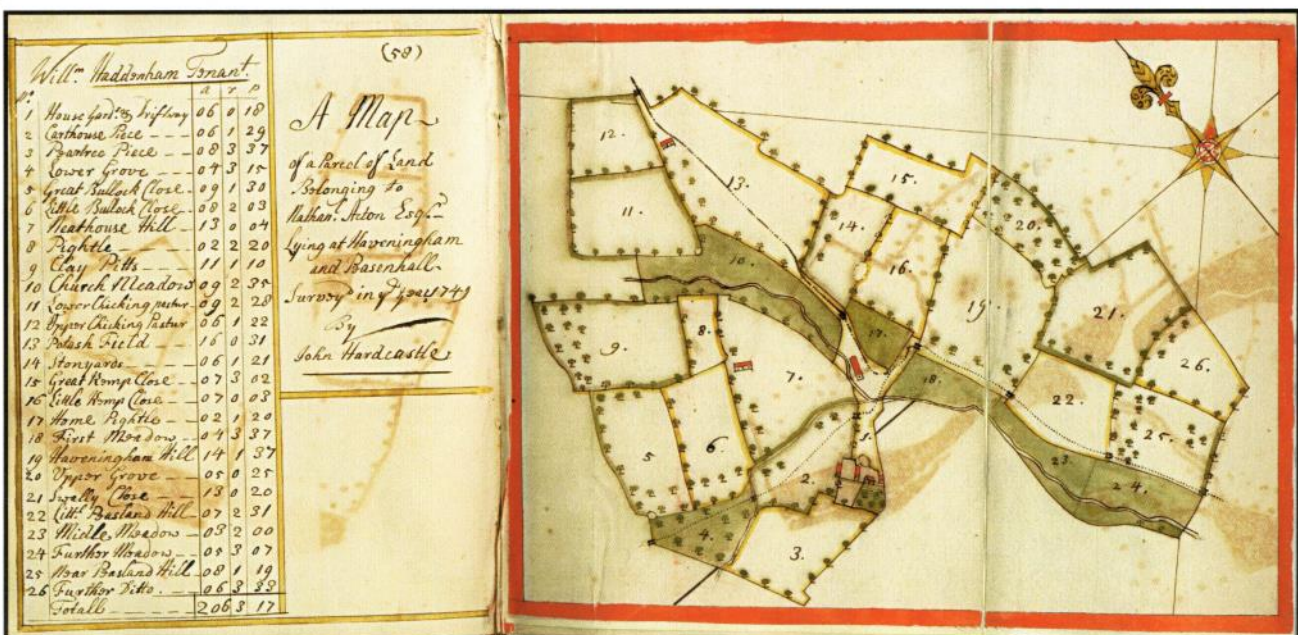 Will.m Haddenham Tenant.
N.o a r p
1 House Gard.n & Driftway 06 0 18
2 Carthouse Piece 06 1 29
3 Peartree Piece 08 3 37
4 Lower Grove 04 3 15
5 Great Bullock Close 09 1 30
6 Little Bullock Close 08 2 03
7 Neathouse Hill 13 0 04
8 Pightle 02 2 20
9 Clay Pitts 11 1 10
10 Church Meadow 09 2 35
11 Lower Chicking pastur 09 2 28
12 Upper Chicking Pastur 06 1 22
13 Potash Field 16 0 31
14 Stonyards 06 1 21
15 Great Hemp Close 07 3 02
16 Little Hemp Close 07 0 03
17 Home Pightle 02 1 20
18 First Meadow 04 3 37
19 Haveningham Hill 14 1 37
20 Upper Grove 05 0 25
21 Swally Close 13 0 20
22 Litt.l Basland Hill 07 2 31
23 Midle Meadow 03 2 00
24 Further Meadow 05 3 07
25 Near Basland Hill 08 1 19
26 Further Ditto. 06 3 33
Totall 206 3 17
(58)
A Map
of a Parcel of Land
Belonging to
Nathan.l Acton Esq.r
Lying at Haveningham
and Basenhall
Survey'd in y.e Year 1749
By
John Hardcastle
12.
11.
13.
10.
14.
15.
16.
20.
17.
19.
21.
26.
9.
8.
7.
18.
22.
25.
5
6.
1.
2.
23.
24.
4.
3.